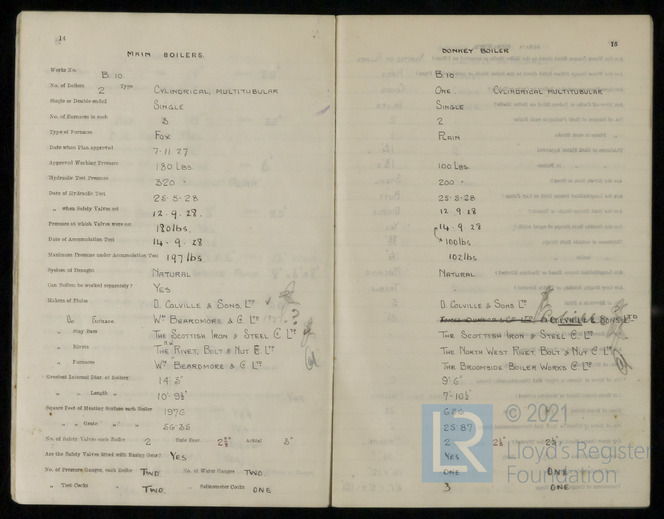 14
MAIN BOILERS.
Works No. B.10.
No. of Boilers 2 Type CYLINDRICAL, MULTITUBULAR
Single or Double ended SINGLE
No. of Furnaces in each 3
Type of Furnaces FOX
Date when Plan approved 7-11-27
Approved Working Pressure 180 LBS.
Hydraulic Test Pressure 320 "
Date of Hydraulic Test 25-5-28
" when Safety Valves set 12.9.28.
Pressure at which Valves were set 180 lbs.
Date of Accumulation Test 14.9.28
Maximum Pressure under Accumulation Test 197 lbs
System of Draught NATURAL
Can Boilers be worked separately? YES
Makers of Plates D. COLVILLE & SONS. LTD
Do Furnace WM BEARDMORE & C. LTD ?
" Stay Bars THE SCOTTISH IRON & STEEL C. LTD
" Rivets THE RIVET, BOLT & NUT C. LTD
" Furnaces WM BEARDMORE & C. LTD
Greatest Internal Diam. of Boilers
" " Length "
Square Feet of Heating Surface each Boiler 1976
" " Grate " " 56.35
No. of Safety Valves each Boiler 2 Actual 3"
Are the Safety Valves fitted with Easing Gear? YES
No. of Pressure Gauges, each Boiler TWO No. of Water Gauges TWO
" Test Cocks " TWO. " Salinometer Cocks ONE
15
DONKEY BOILER
B.10
ONE CYLINDRICAL MULTITUBULAR
SINGLE
2
PLAIN
100 LBS.
200 "
25-5-28
12.9.28
14.9.28
100 lbs
102 lbs
NATURAL
D. COLVILLE & SONS LTD
COLVILLE & SONS LTD
THE SCOTTISH IRON & STEEL C. LTD
THE NORTH WEST RIVET, BOLT & NUT C. LTD
THE BROOMSIDE BOILER WORKS C. LTD
9'.6"
7'-10½"
25.87
2
YES
ONE ONE
3 ONE
LR
© 2021
Lloyd's Register
Foundation